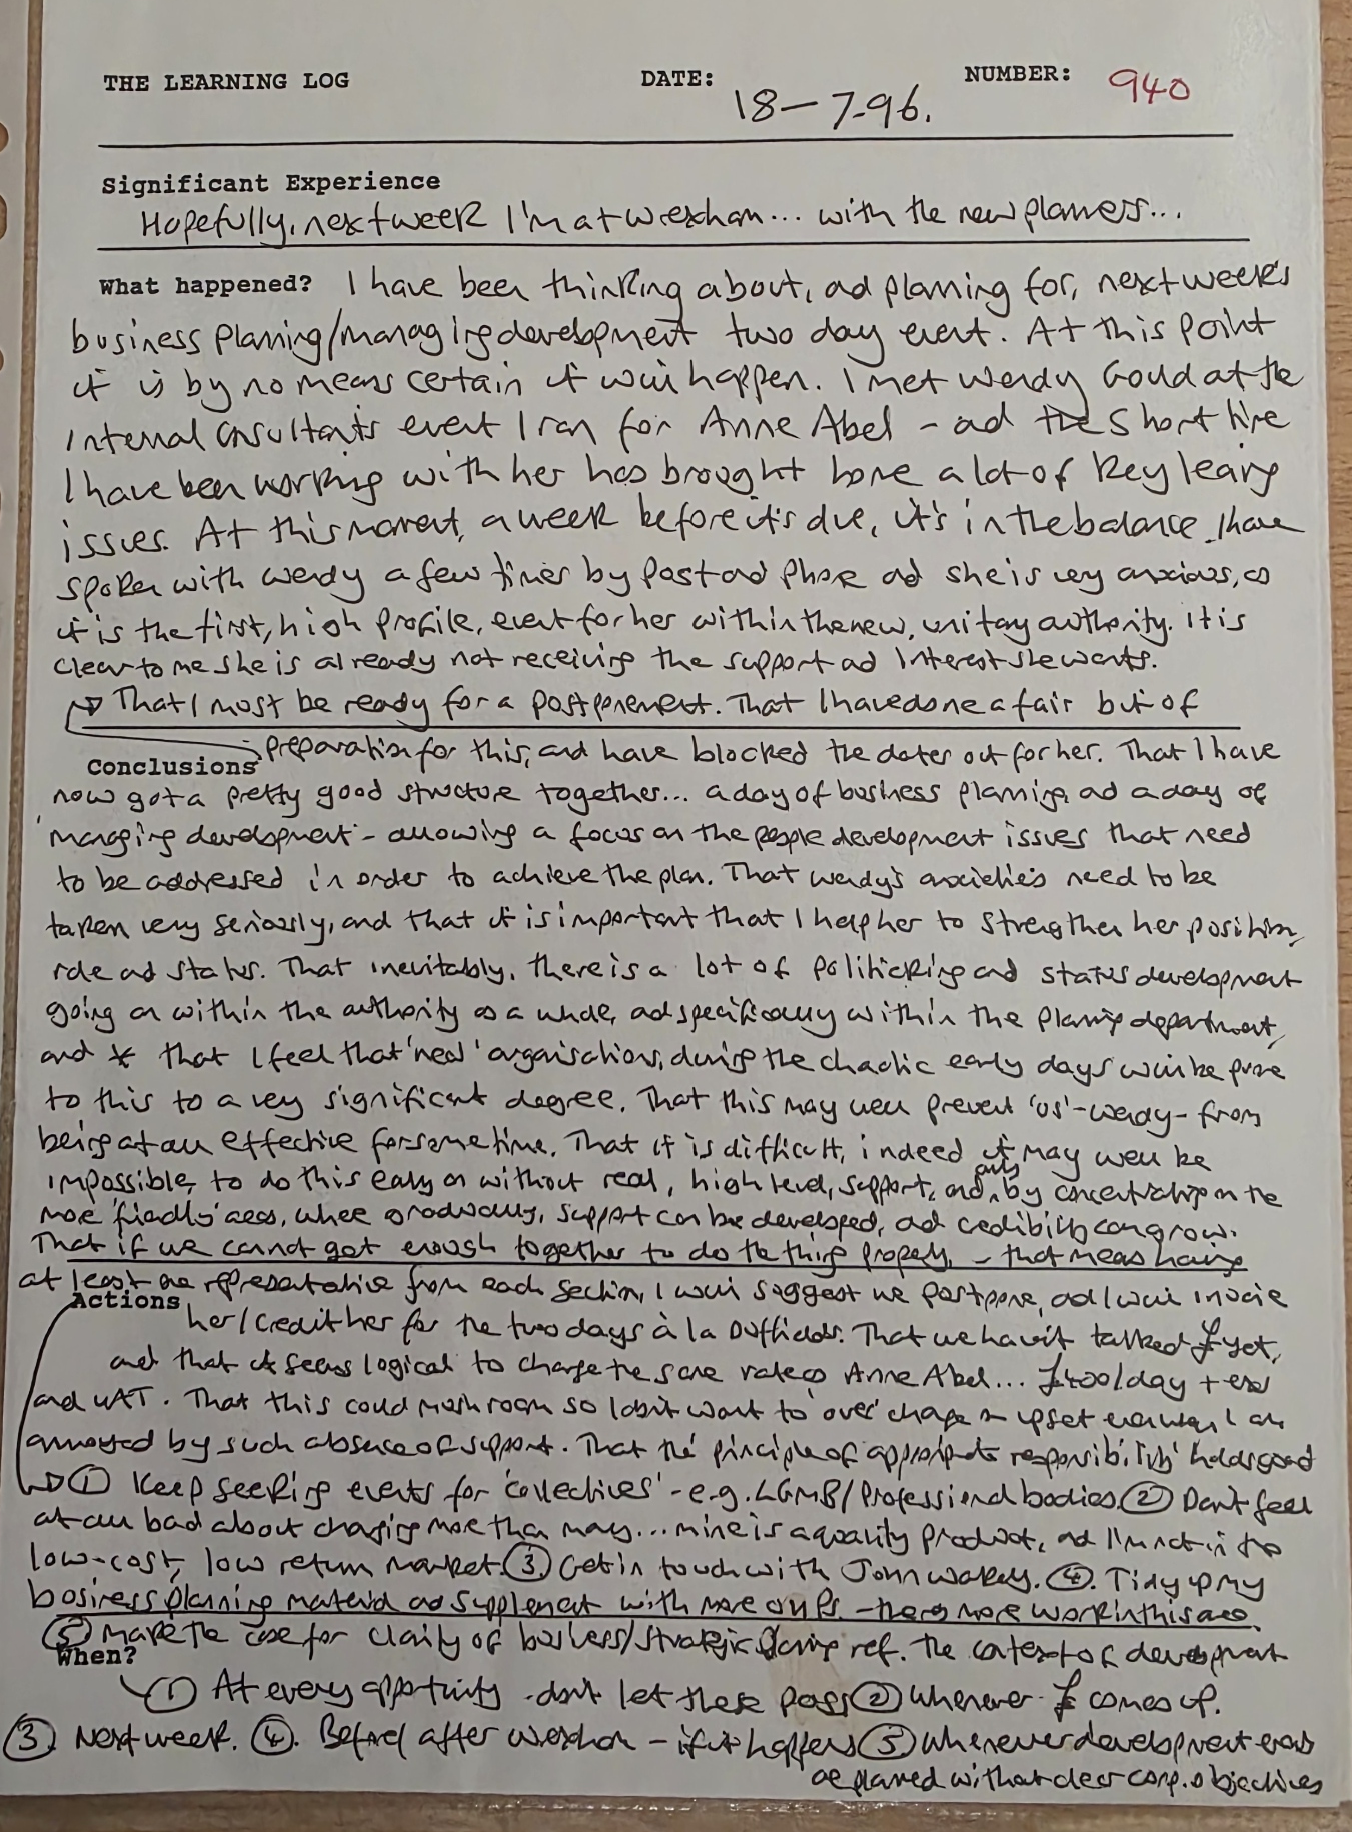 THE LEARNING LOG DATE: 18-7-96. NUMBER: 940
Significant Experience
Hopefully, next week I'm at Wrexham... with the new planners...
What happened? I have been thinking about, ad planning for, next week's
business planning/managing development two day event. At this point
it is by no means certain it will happen. I met Wendy Gould at the
Internal Consultants event I ran for Anne Abel - ad the short time
I have been working with her has brought home a lot of key learng
issues. At this moment, a week before it's due, it's in the balance. I have
spoken with Wendy a few times by post ad phone ad she is very anxious, as
it is the first, high profile, event for her within the new, unitary authority. It is
clear to me she is already not receiving the support ad interest she wants.
That I must be ready for a postponement. That I have done a fair bit of
Conclusions preparation for this, and have blocked the dates out for her. That I have
now got a pretty good structure together... a day of business planning, ad a day of
'managing development' - allowing a focus on the people development issues that need
to be addressed in order to achieve the plan. That Wendy's anxieties need to be
taken very seriously, and that it is important that I help her to strengthen her position,
role ad status. That inevitably, there is a lot of politicking and status development
going on within the authority as a whole, ad specifically within the planning department,
and * that I feel that 'new' organisations, during the chaotic early days will be prone
to this to a very significant degree. That this may well prevent 'us' - Wendy - from
being at all effective for some time. That it is difficult, indeed it may well be
impossible, to do this early on without real, high level, support, and, only by concentrating on the
more 'friendly' areas, where gradually, support can be developed, ad credibility can grow.
That if we cannot get enough together to do the thing properly, - that means having
at least one representative from each section, I will suggest we postpone, ad I will invoice
Actions her/credit her for the two days à la Duffields. That we haven't talked £ yet,
and that it seems logical to charge the same rate as Anne Abel... £400/day + exs
and VAT. That this could mushroom so I don't want to 'over' charge or upset even when I am
annoyed by such absence of support. That the 'principle of appropriate responsibility' holds good
① Keep seeking events for 'collectives' - e.g. LGMB/Professional bodies. ② Don't feel
at all bad about charging more than many... mine is a quality product, ad I'm not in the
low-cost, low return market. ③. Get in touch with John Wakely. ④. Tidy up my
business planning material ad supplement with more OHPs. - there's more work in this area.
⑤ Make the case for clarity of business/strategic planning ref. the context of development
When?
① At every opportunity - don't let these pass ② Whenever £ comes up.
③. Next week. ④. Before/after Wrexham - if it happens ⑤ Whenever development events
are planned without clear corp. objectives